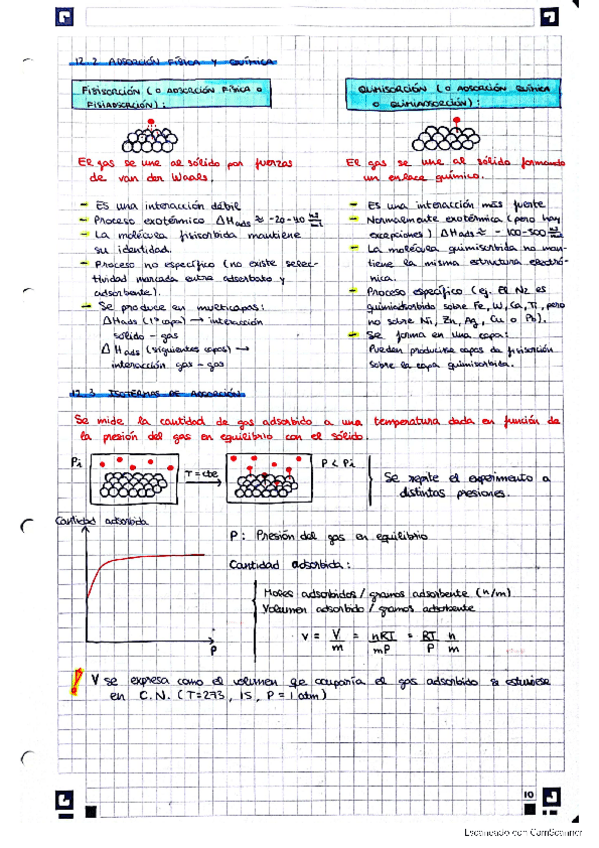 12.2 ADSORCIÓN FÍSICA Y QUÍMICA
FISISORCIÓN (O ADSORCIÓN FÍSICA O
FISIADSORCIÓN):
El gas se une al sólido por fuerzas
de van der Waals.
- Es una interacción débil
- Proceso exotérmico ΔHads ≈ -20-40 kJ/mol
- La molécula fisisorbida mantiene
su identidad.
- Proceso no específico (no existe selec-
tividad marcada entre adsorbato y
adsorbente).
- Se produce en multicapas:
ΔHads (1ª capa) → interacción
sólido - gas
ΔHads (siguientes capas) →
interacción gas - gas
QUIMISORCIÓN (O ADSORCIÓN QUÍMICA
O QUIMIADSORCIÓN):
El gas se une al sólido formando
un enlace químico.
- Es una interacción más fuerte
- Normalmente exotérmica (pero hay
excepciones) ΔHads ≈ -100-500 kJ/mol
- La molécula quimisorbida no man-
tiene la misma estructura electró-
nica.
- Proceso específico (ej. El N2 es
quimiadsorbido sobre Fe, W, Ca, Ti, pero
no sobre Ni, Zn, Ag, Cu o Pb).
- Se forma en una capa:
Pueden producirse capas de fisisorción
sobre la capa quimisorbida.
12.3 ISOTERMAS DE ADSORCIÓN
Se mide la cantidad de gas adsorbido a una temperatura dada en función de
la presión del gas en equilibrio con el sólido.
Pi
T = cte
P < Pi
Se repite el experimento a
distintas presiones.
Cantidad adsorbida
P
P: Presión del gas en equilibrio
Cantidad adsorbida:
Moles adsorbidos / gramos adsorbente (n/m)
Volumen adsorbido / gramos adsorbente
v = V/m = nRT/mP = RT/P n/m
! V se expresa como el volumen que ocuparía el gas adsorbido si estuviese
en C.N. (T=273,15, P=1 atm)
10
Escaneado con CamScanner